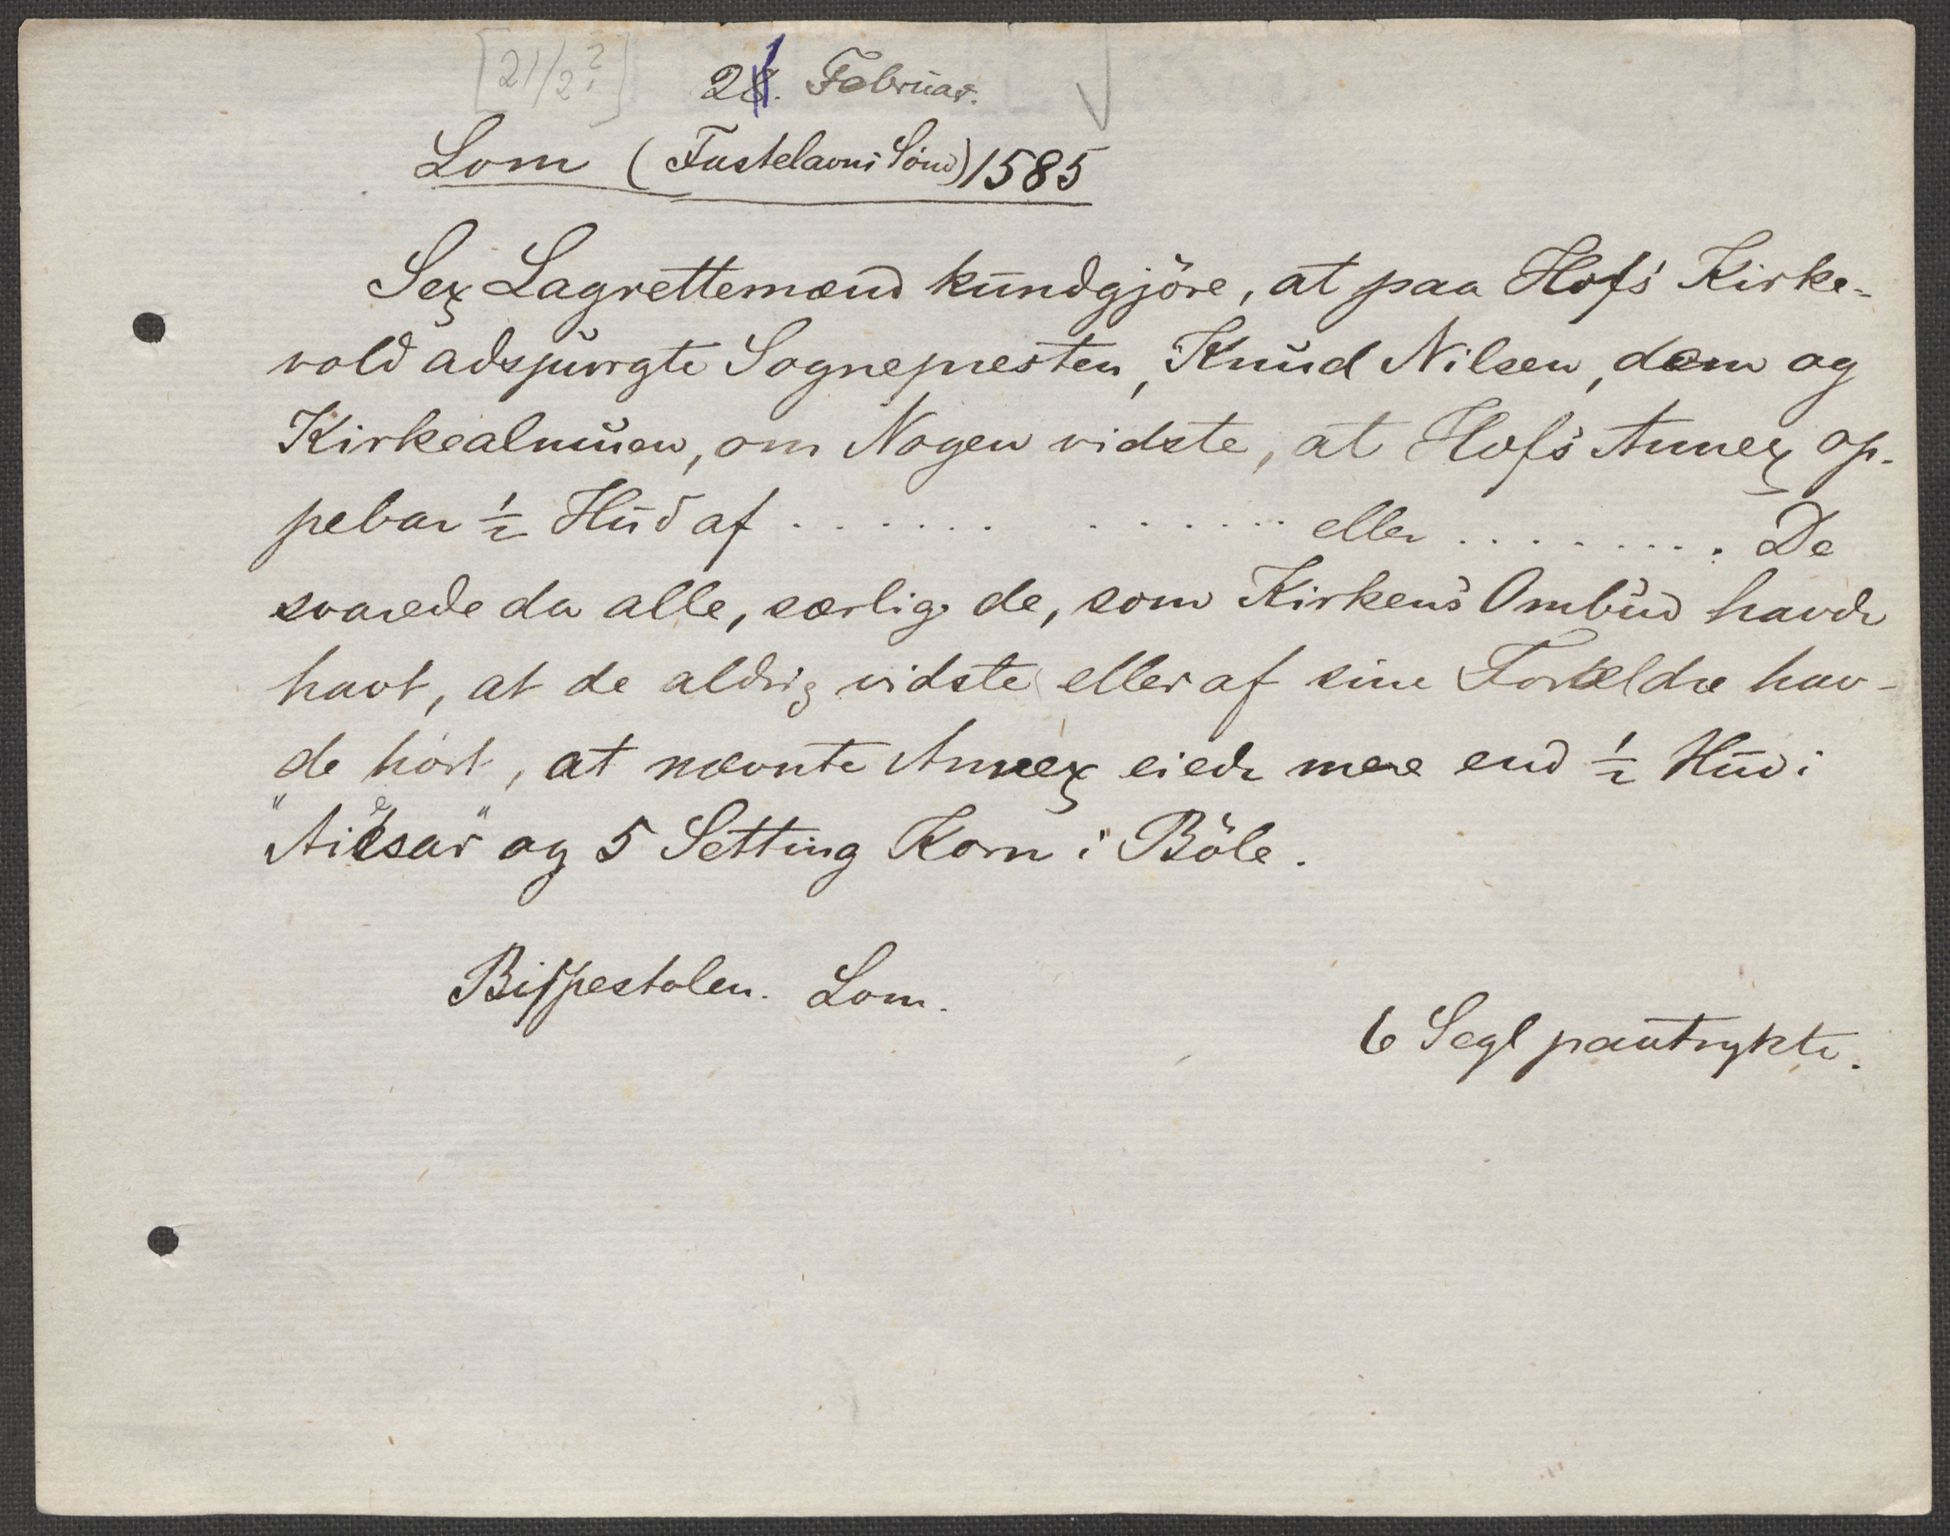 [21/2?] 21. Februar.
Lom (Fastelavns Sönd) 1585
Sex Lagrettemænd kundgjöre, at paa Hofs Kirke-
vold adspurgte Sognepresten, Knud Nilsen, dem og
Kirkealmuen, om Nogen vidste, at Hofs Annex op-
pebar ½ Hud af . . . . . . . . . . . . . eller . . . . . . . . . De
svarede da alle, særlig de, som Kirkens Ombud havde
havt, at de aldrig vidste eller af sine Forældre hav-
de hört, at nævnte Annex eiede mere end ½ Hud i
og 5 Setting Korn i Böle.
Bispestolen. Lom.
6 Segl paatrykte.